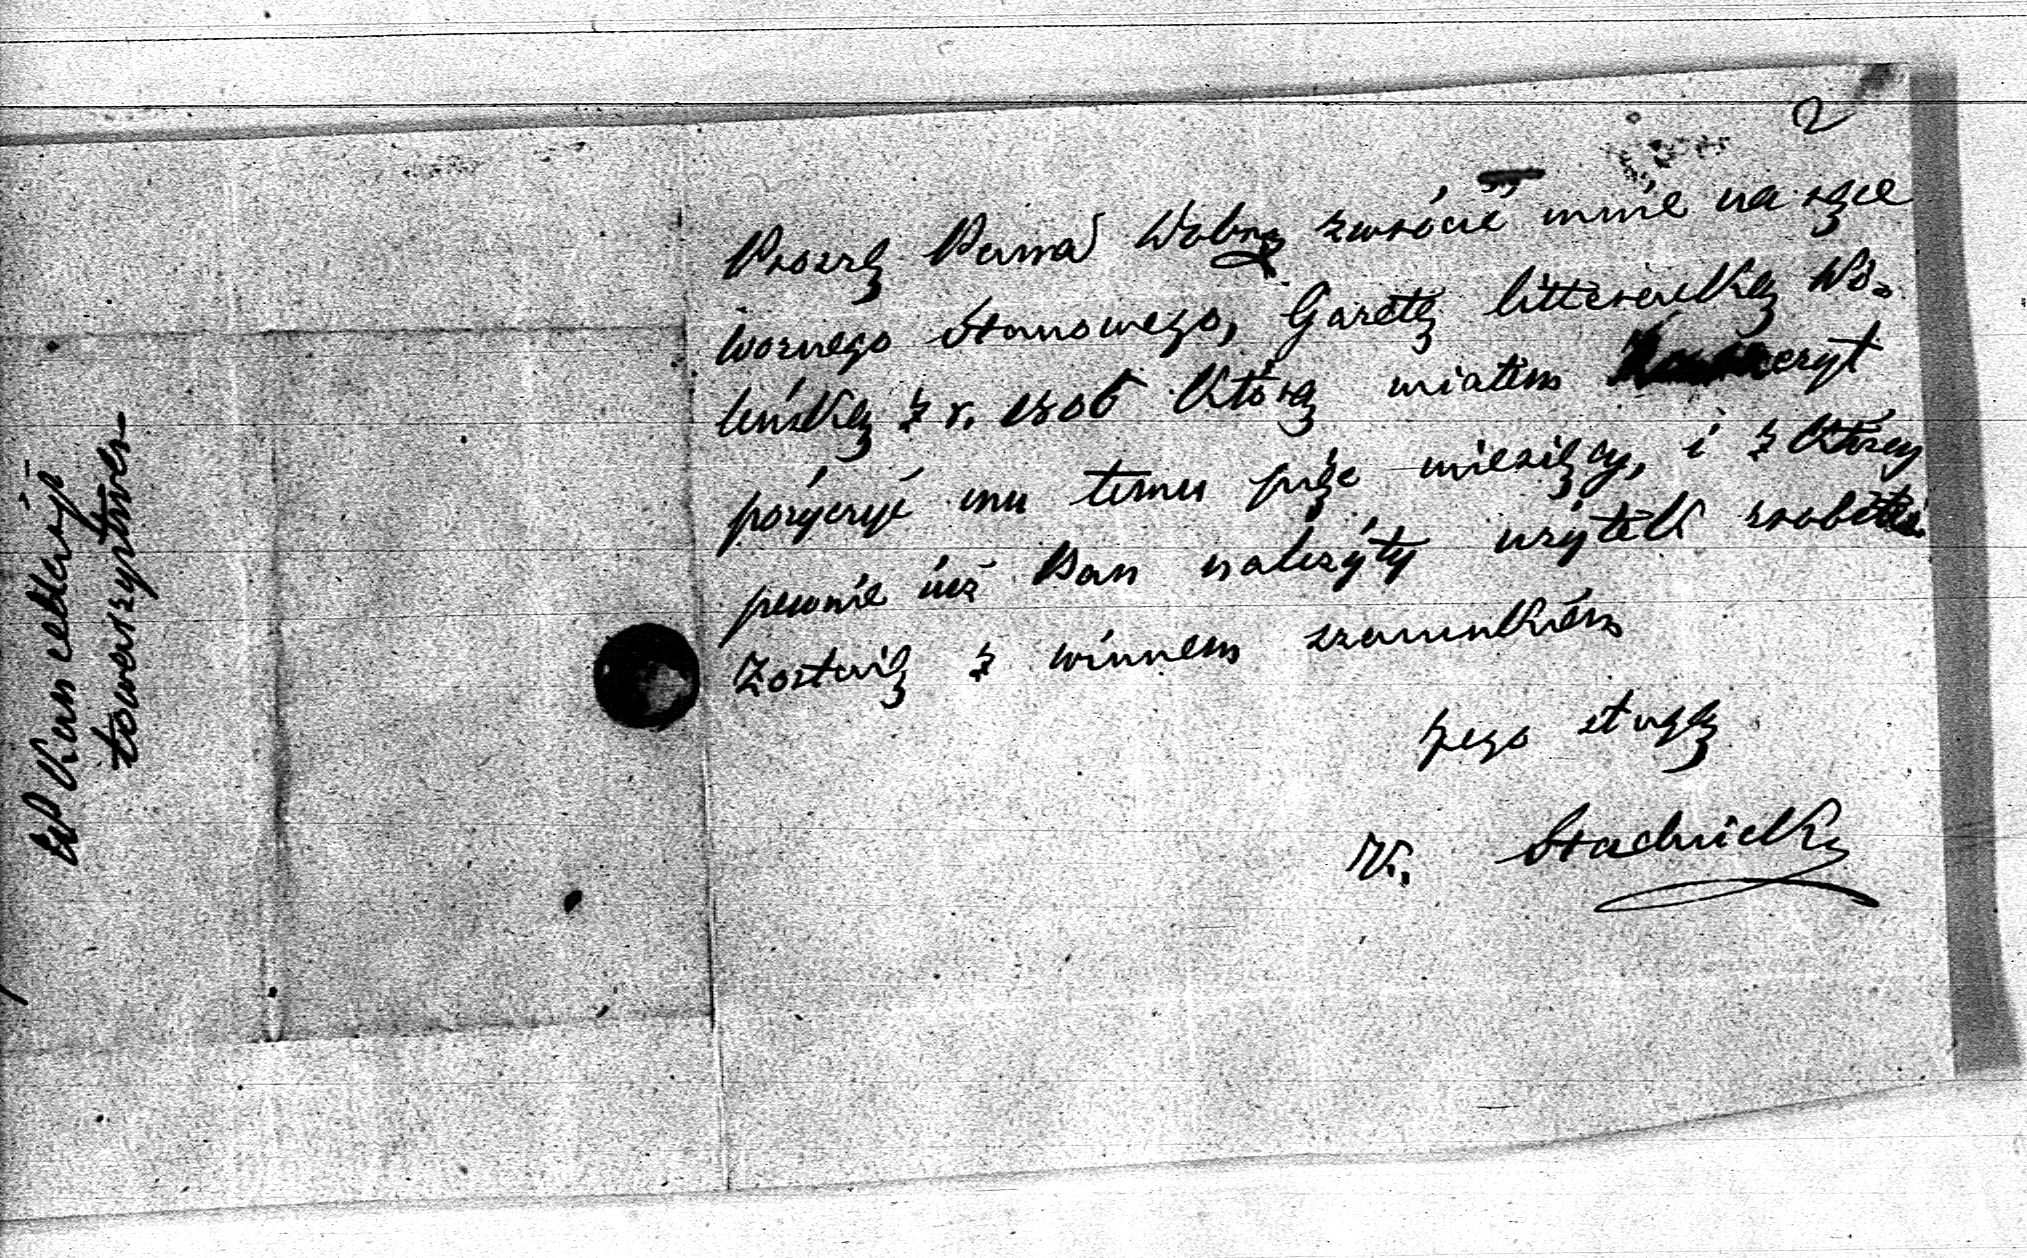 2
Proszę Pana Dobr: zwrócić mnie na ręce
woznego Stanowego, Gazetę litteracką Wi-
leńską z r. 1806 którą miałem zaszczyt
pożyczyć mu temu pięć miesięcy, i z któréy
pewnie iuż Pan należyty użytek zrobiłeś.
Zostaię z winnem szacunkiem
Jego sługą
K. Stadnicki
W Kancellaryi
towarzystwa